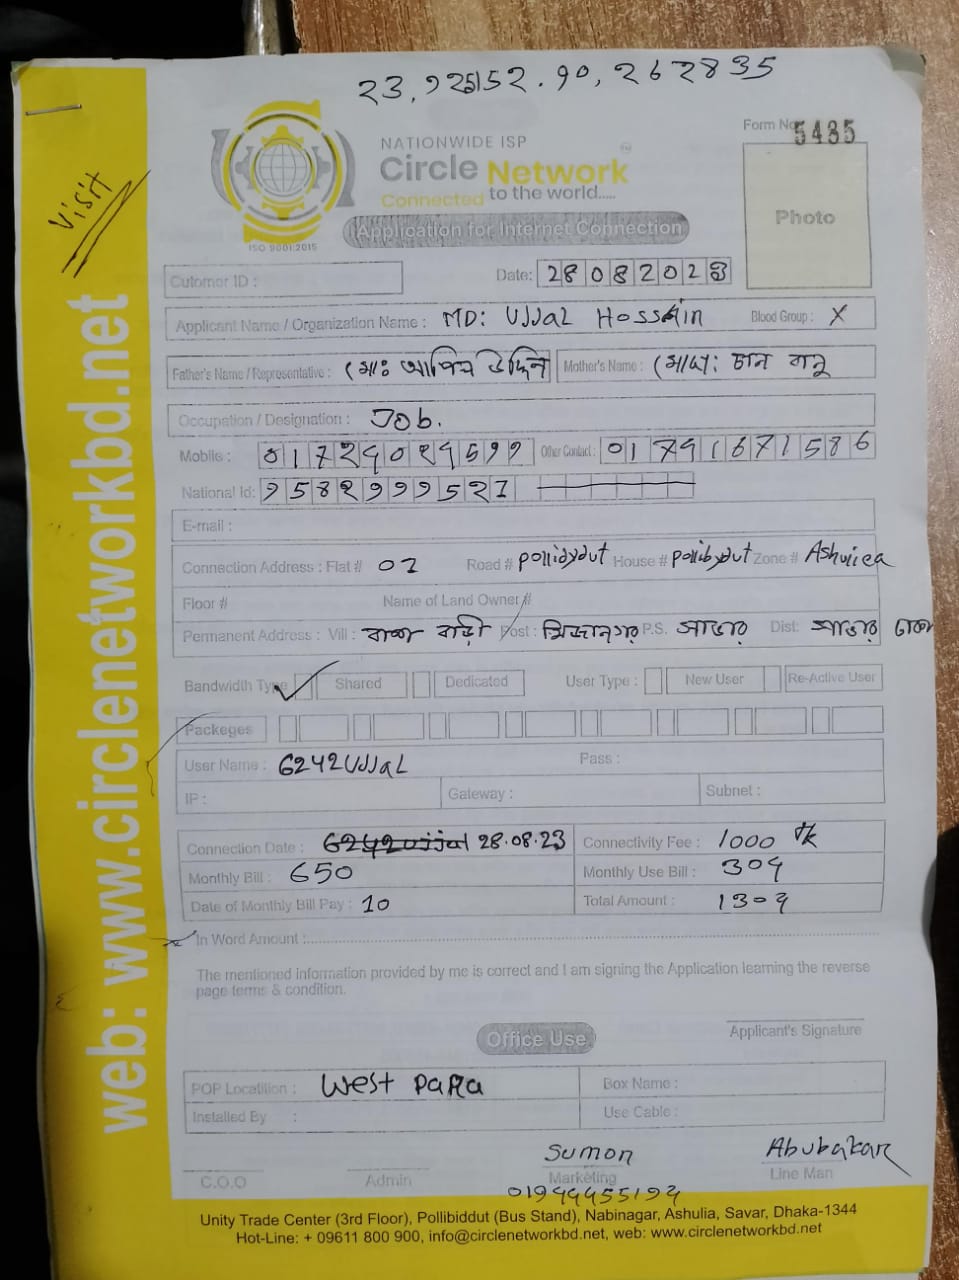 23.92552.90,262835
Visit
Form No 5435
NATIONWIDE ISP
Circle Network
Connected to the world.....
ISO 9001:2015
Application for Internet Connection
Photo
Cutomer ID :
Date: 28082023
Applicant Name / Organization Name : MD: UJJaL HossAin Blood Group : X
Father's Name / Representative : (মোঃ উদ্দিন Mother's Name : চান বানু
Occupation / Designation : Job.
Mobile : Other Contact : 01791671586
National Id:
E-mail :
Connection Address : Flat # Road # House # Zone #
Floor # Name of Land Owner #
Permanent Address : Vill : বাড়ী Post : মির্জানগর P.S. সাভার Dist: সাভার ঢাকা
Bandwidth Type Shared Dedicated User Type : New User Re-Active User
Packeges
User Name : 6242UJJaL Pass :
IP : Gateway : Subnet :
Connection Date : 6242ujjal 28.08.23 Connectivity Fee : 1000 tk
Monthly Bill : 650 Monthly Use Bill : 304
Date of Monthly Bill Pay : 10 Total Amount : 1304
In Word Amount :
The mentioned information provided by me is correct and I am signing the Application learning the reverse
page terms & condition.
Applicant's Signature
Office Use
POP Locatition : West PaRa Box Name :
Installed By : Use Cable :
Sumon Abubakar
C.O.O Admin Marketing Line Man
web: www.circlenetworkbd.net
Unity Trade Center (3rd Floor), Pollibiddut (Bus Stand), Nabinagar, Ashulia, Savar, Dhaka-1344
Hot-Line: + 09611 800 900, info@circlenetworkbd.net, web: www.circlenetworkbd.net